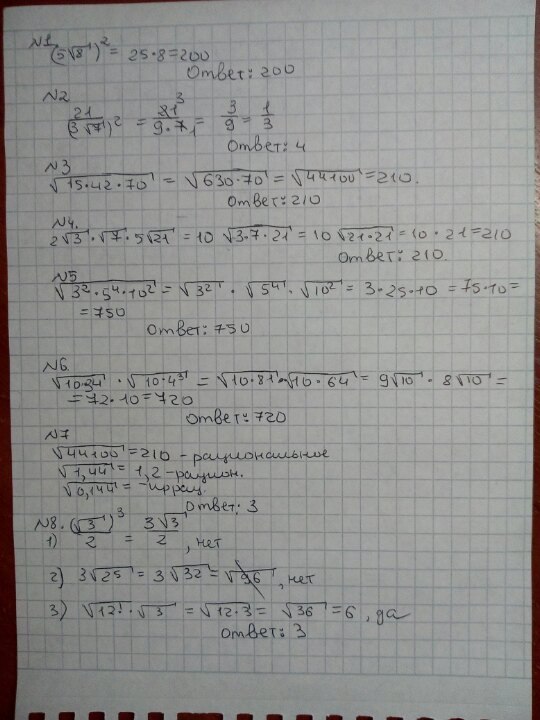 №1.
(5√8)² = 25·8=200
Ответ: 200
№2
21/(3√7)² = 21³/9·7₁ = 3/9 = 1/3
Ответ: 4
№3
√15·42·70 = √630·70 = √44100 = 210.
Ответ: 210
№4.
2√3·√7·5√21 = 10 √3·7·21 = 10√21·21 = 10·21=210
Ответ: 210.
№5
√3²·5⁴·10² = √3² · √5⁴ · √10² = 3·25·10 = 75·10=
=750
Ответ: 750
№6.
√10·34 · √10·4³ = √10·81·√10·64 = 9√10 · 8√10 =
=72·10=720
Ответ: 720
№7
√44100 = 210 - рациональное
√1,44 = 1,2 - рацион.
√0,144 = -ирац.
Ответ: 3
№8. (√3)³
1) 2 = 3√3/2, нет
2) 3√2⁵ = 3√32 = √96, нет
3) √12 · √3 = √12·3 = √36 = 6, да
Ответ: 3